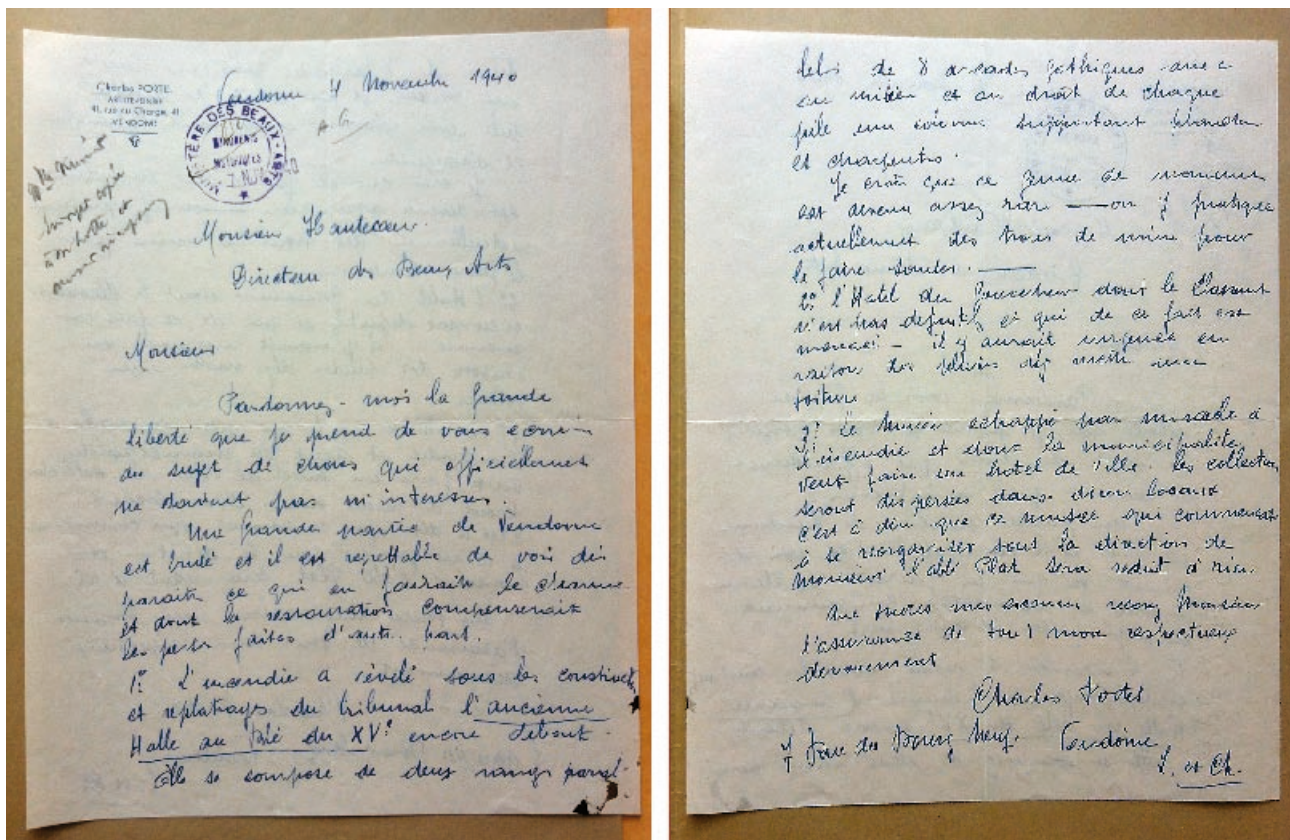 Charles PORTEL
ARCHITECTE
41, rue du Change, 41
VENDOME
Vendome 4 Novembre 1940
A G
MINISTÈRE DES BEAUX-ARTS
envoyer copie
Monsieur Hautecœur
Directeur des Beaux Arts
Monsieur
Pardonnez-moi la grande
liberté que je prend de vous ecrire
au sujet de choses qui officiellement
ne doivent pas m'interesser.
Une grande partie de Vendome
est brulé et il est regrettable de voir dis
paraitre ce qui en faisait le charme
et dont la restauration compenserait
les pertes faites d'autre part.
1º L'incendie a révélé sous les construct
et replatrages du tribunal l'ancienne
Halle au Blé du XVe encore debout.
Elle se compose de deux rangs paral-
leles de 8 arcades gothiques avec
au milieu et au droit de chaque
pile une colonne supportant plancher
et charpentes.
Je crois que ce genre de monument
est devenu assez rare — on y pratique
actuellement des trous de mine pour
le faire sauter. —
2º l'Hotel du Gouverneur dont le Classement
n'est pas definitif et qui de ce fait est
menacé - il y aurait urgence en
raison des pluies d'y mettre une
toiture
3º Le musée echappé par miracle à
l'incendie et dont la municipalite
veut faire un hotel de ville. les collections
seront dispersées dans divers locaux
c'est à dire que ce musée qui commencait
à se reorganiser sous la direction de
Monsieur l'abbé Plat sera reduit à rien.
Avec toutes mes excuses recevez Monsieur
l'assurance de tout mon respectueux
devouement
Charles Portel
7 Rue du Bourg Neuf. Vendome
L. et Ch.